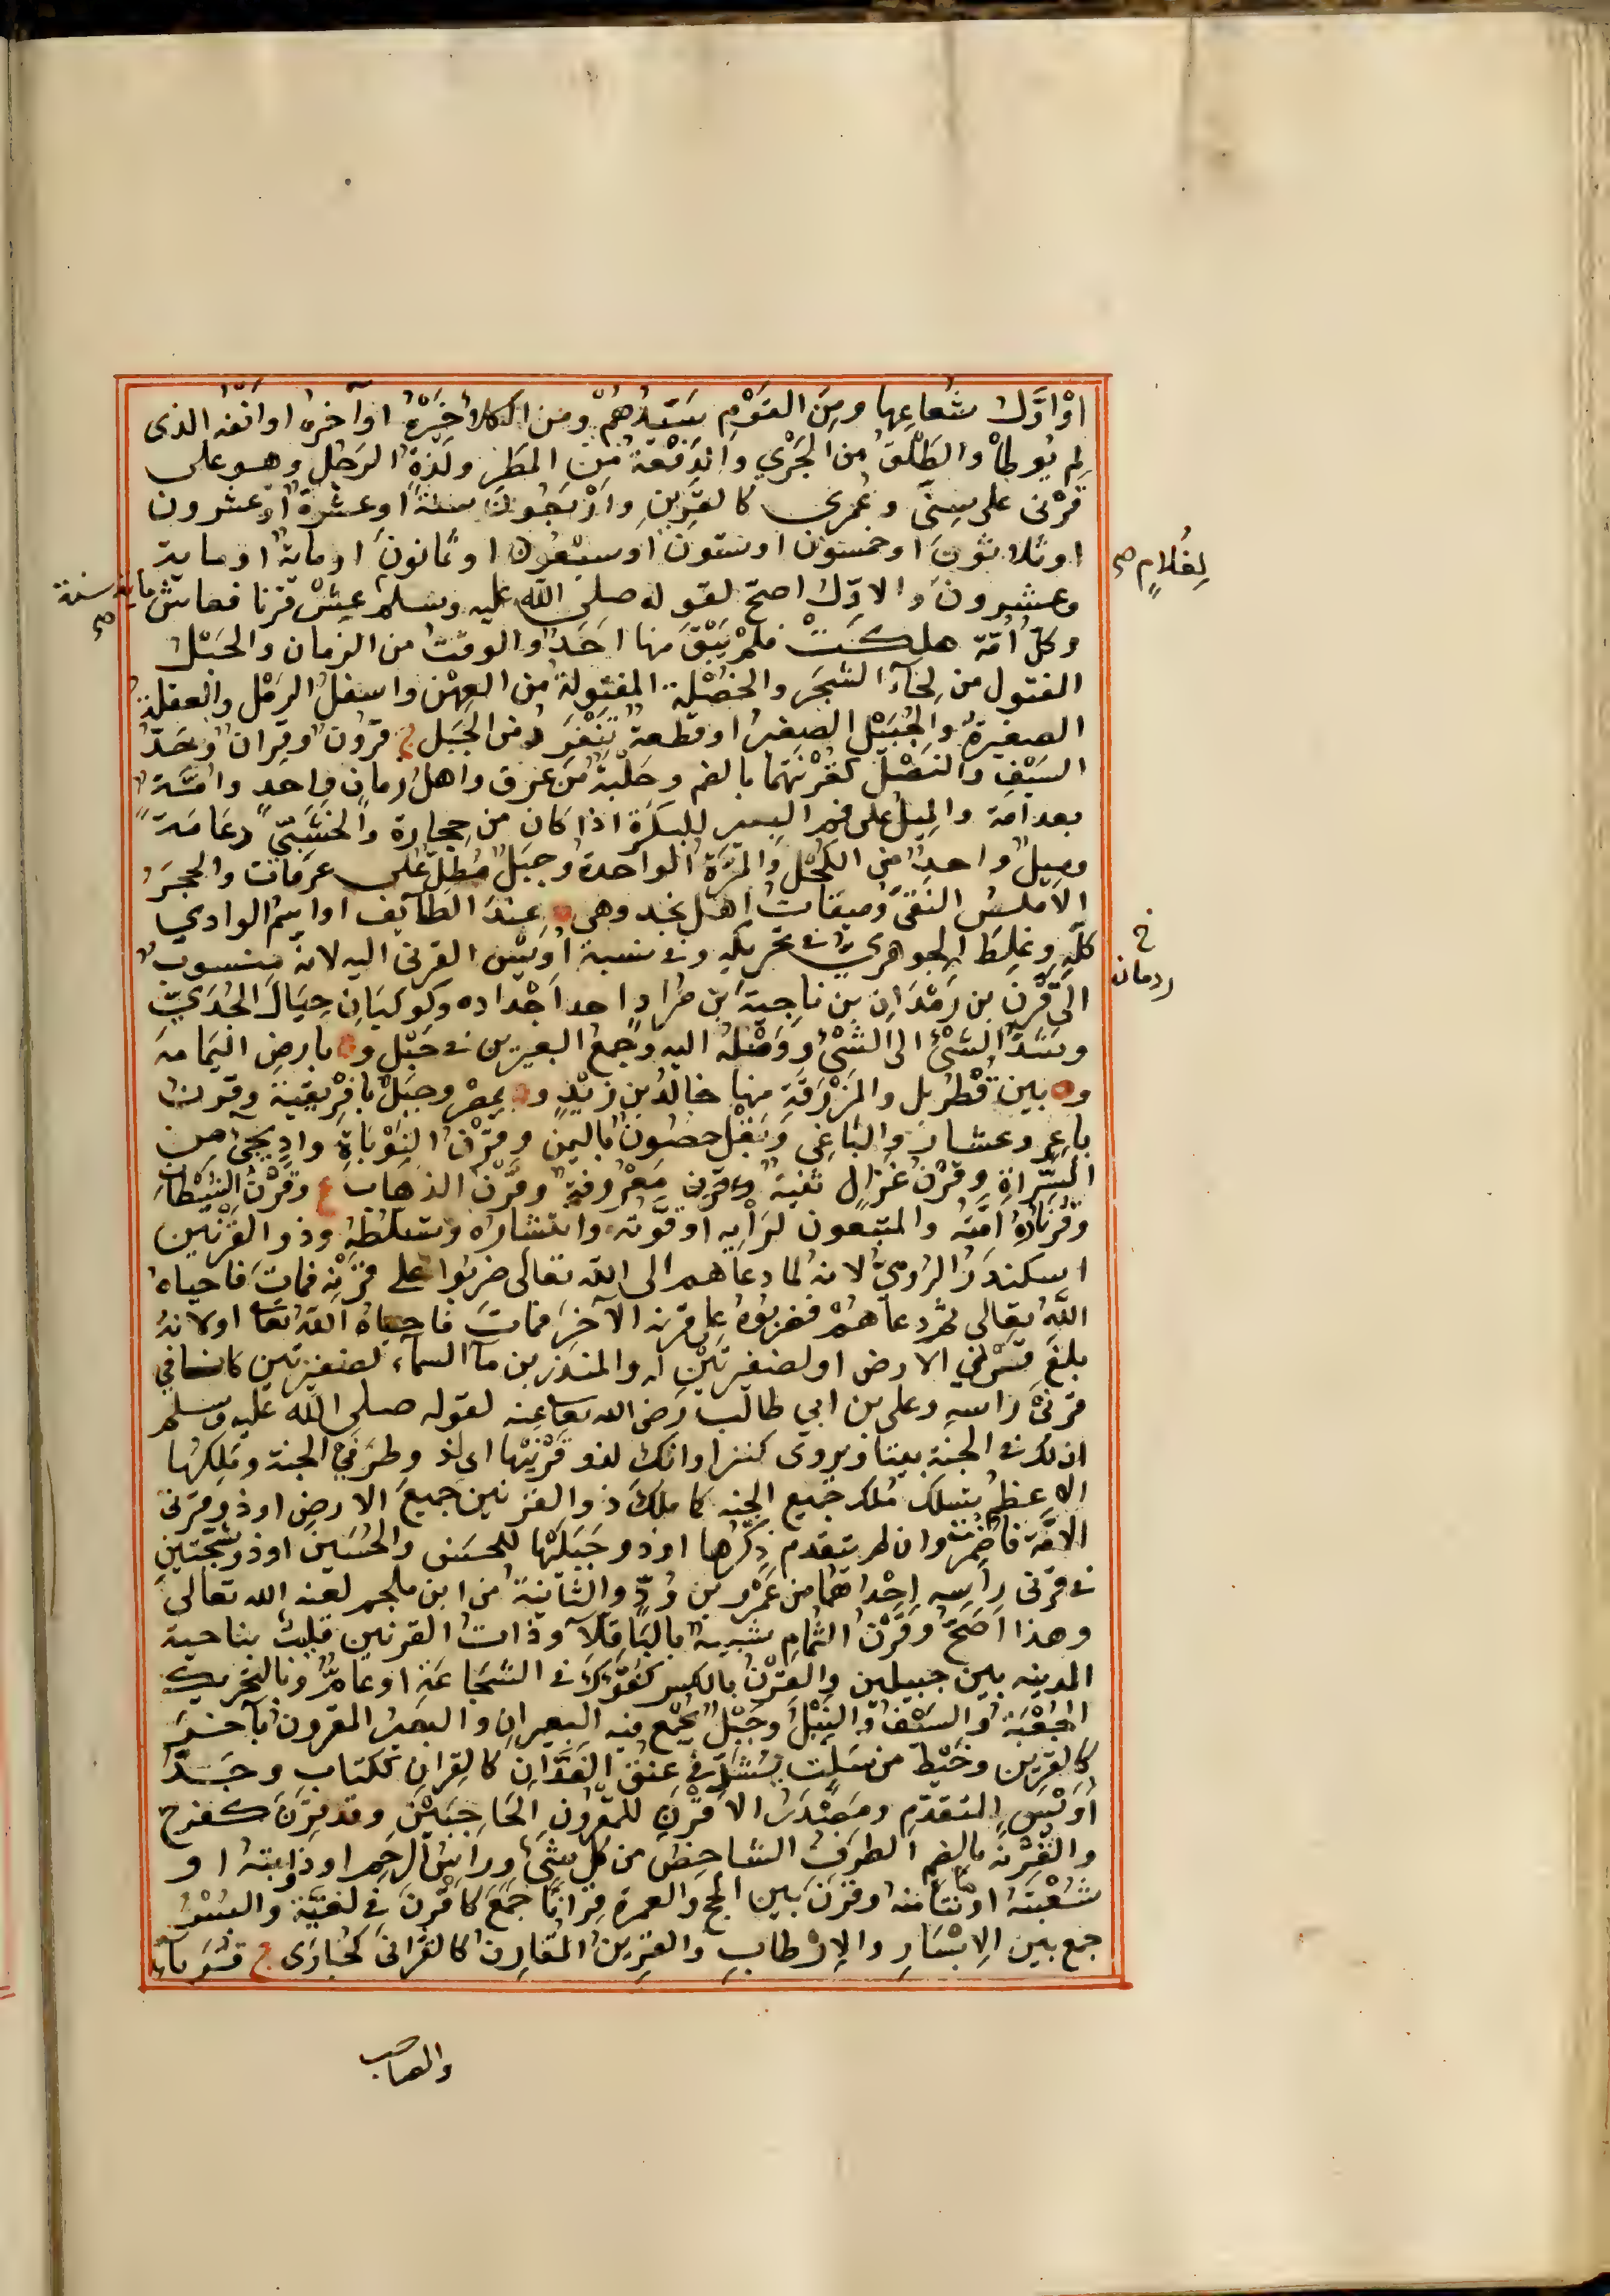 اوْ اوَّلُ شُعاعِها ومِنَ القَوْمِ سَيّدُهُمْ ومن الكلاءِ خَيْرُهُ اوآخرهُ اوانفه الذى
لم يُوطأْ والطَلَقُ من الجَرْيِ والدَفْعَةُ مِنَ المَطَرِ ولِدَةُ الرَجُلِ وهو على
قَرْنى على سِنّى وعُمرى كالقَرِينِ وارْبَعُونَ سنةً اوعشرةٌ اوْ عشرون
اوثلاثونَ اوخمسون اوستون اوسبعون اوثمانونَ اومايةٌ اوماية
وعشرونَ والاوّل اصحّ لقوله صلى الله عليه وسلم عِشْ قرنا فعاش ماية سنة صح
لِغُلامٍ صح
وكلّ اُمّة هلكَتْ فلمْ يَبْقَ منها احَدٌ والوقتُ من الزمان والحَبْلُ
المفتول من لِحآءِ الشجَرِ والخُصْلَة المفتولةُ من العِهْنِ واسفلُ الرَمْلِ والعفلة
الصغيرةُ والجُبَيْلُ الصغيرُ اوقطعةٌ تَنْفَرِدُ من الجَبَلِ ج قرُونٌ وقِرانٌ وحَدُّ
السَيْفِ والنَصْلِ كقُرْنَتهما بالضم وحَلْبَةٌ من عَرَقٍ واهلُ زمانٍ واحدٍ وامّةٌ
بعد امّة والمِيلُ على فم البير للبَكَرَةِ اذا كان من حجارة والخَشَبيّ دِعَامَةٌ
ومِيلٌ واحدٌ من الكُحْلِ والمَرَّةُ الواحدةُ وجبَلٌ مُطِلٌّ على عرفات والحَجَرُ
الاملسُ النَقىُّ ومِيقاتُ اهلِ نجد وهى ة عِندَ الطآئفِ اواسمُ الوادي
كلّهِ وغلِطَ الجوهريّ فى تحريكهِ وفى نسبة اُوَيْسٍ القرنى اليه لانه منسوبٌ
خ ردمان
الى قَرْنِ بن رَمْدَانِ بن ناجيةَ بن مُرادٍ احدِ اجْدادِه وكوكبَانِ حِيَالَ الجُدَيّ
وشَدُّ الشىْءِ الى الشىْءِ ووَصْلهُ اليه وجمعُ البعيرين فى حَبْلٍ وة بارضِ اليَمامَة
وة بين قُطرُبل والمَزْرَفَةِ منها خالدُ بن زَيْدٍ وة بمصْرَ وجبَلٌ بافْرِيقِيةَ وقرن
باعِرٍ وعشارٍ والناعِى وبَقْلٍ حصُونٌ باليمن وقَرْنُ البَوْباةِ وادٍ يجىُ من
السَّراةِ وقَرْنُ غزالٍ ثنية معروفةٌ وقَرْنُ الذهاب ع وقَرْنُ الشيْطانِ
وقَرْناهُ اُمَّتُه والمتبعون لرَأْيِه اوقُوَّتُه وانتشارُه وتسلطُه وذو القَرْنَين
اسكندَرُ الروميُّ لانه لما دعاهم الى الله تعالى ضربُوا على قَرْنِه فماتَ فاحياهُ
اللهُ تعالى ثم دعاهُمْ فضربُوهُ على قرنه الآخَرِ فماتَ فاحياهُ اللهُ تعا اولانهُ
بلَغَ قَرْنَيِ الارض اولضفيرتَيْنِ له والمنذرُ بن مآ السمآء لضفيرتين كانتا فى
قرنَىْ راسِه وعلى بن ابى طالب رضى الله تعا عنه لقوله صلى الله عليه وسلم
ان لك فى الجنة بيتا ويروى كنزا وانك لذو قَرْنَيْها اى ذو طرَفَيِ الجنة ومَلِكُها
الاعظمُ تسلك مُلك جميع الجنه كما ملكَ ذو القرنين جميعَ الارضِ اوذو قرنى
الامّة فاضْمِرَتْ وان لم يتقدم ذِكْرُها اوذو جَبَلَيْها للحسَنِ والحُسَينِ اوذو شجّتينِ
فى قرنى راسِه احْداهُما من عَمْرو بن وُدٍّ والثانية من ابن ملجم لعنه الله تعالى
وهذا اصَحُّ وقَرْنُ الثُمامِ شبيه بالبَاقلّا وذاتُ القرنين قليبٌ بناحية
المدينه بين جبيلين والقِرْنُ بالكسر كُفؤكَ فى الشجاعةِ اوعامٌّ وبالتحريك
الجَعْبَةُ والسَيْفُ والنَبْلُ وحَبْلٌ يُجْمع فيه البعيرانِ والبعيرُ المقرونُ بآخَرَ
كالقرين وخَيْطٌ من سَلَبٍ يُشدُّ فى عنق الفَدَّانِ كالقِرانِ ككتابٍ وجَدُّ
اُوَيْسٍ المتقدّمِ ومَصْدَرُ الاقْرَنِ للمقرُونِ الحاجِبَيْنِ وقد قرِنَ كفرح
والقُرْنَة بالضم الطرَفُ الشاخِصُ من كل شىْءٍ وراسُ الرحِم اوزاويتُه او
شُعْبَتُه اوما نتأ منه وقرَنَ بين الحج والعمرة قِرانًا جَمَعَ كاقْرَنَ فى لغيّة والبُسْرُ
جمع بين الابْسَارِ والارْطابِ والقرِينُ المُقارِنُ كالقُرانى كحُبارَى ج قُرَنآءُ
والمصاحب